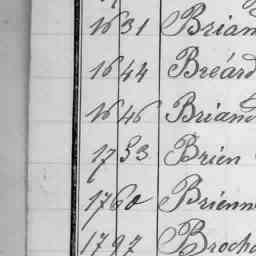 1631 Brian
1644 Bréard
1646 Briand
1753 Brien
1760 Brienn
1797 Broch